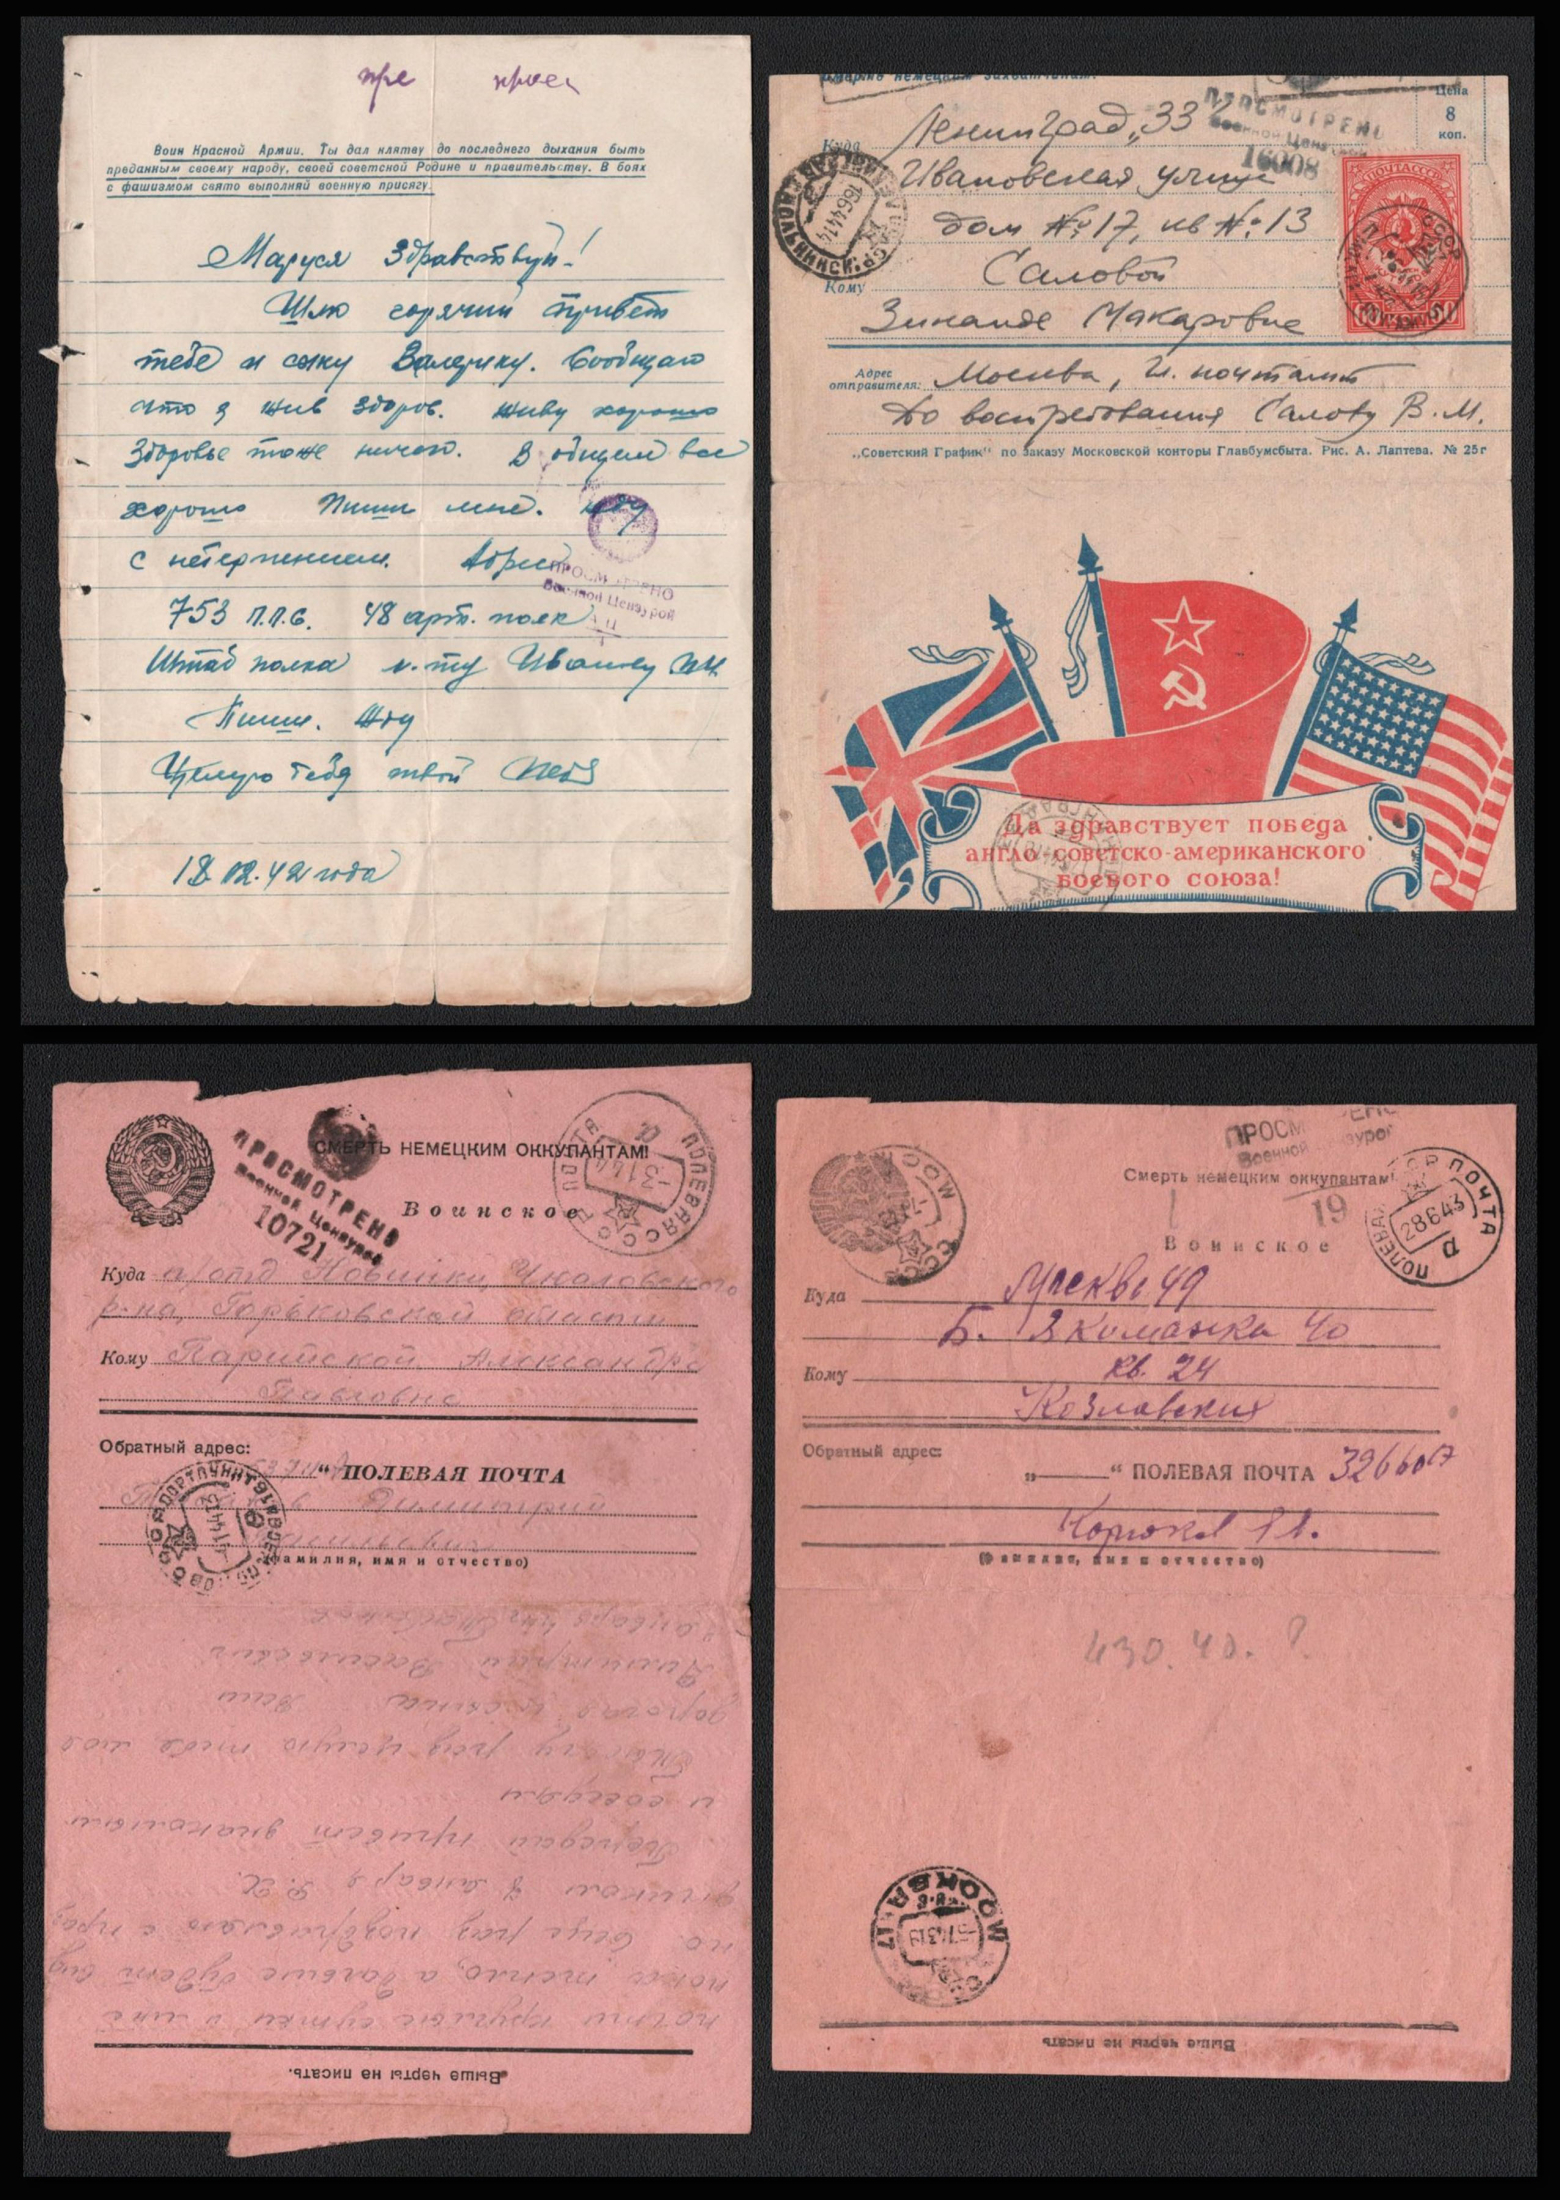 Воин Красной Армии. Ты дал клятву до последнего дыхания быть
преданным своему народу, своей советской Родине и правительству. В боях
с фашизмом свято выполняй военную присягу.
Маруся Здравствуй!
Шлю горячий привет
тебе и сыну Валерику. Сообщаю
что я жив здоров. Живу хорошо
Здоровье тоже ничего. В общем все
хорошо Пиши мне. Жду
с нетерпением.
ПРОСМОТРЕНО
Военной Цензурой
753 п.п.с. 48 арт. полк
Штаб полка Иванову
Пиши. Жду
Целую тебя твой Петя
18.02.42 года
смерть немецким захватчикам!
Цена
8
коп.
ПРОСМОТРЕНО
Военной Цензурой
16008
Куда Ленинград, 33
Ивановская улица
дом № 17, кв № 13
Саловой
Кому
Зинаиде Макаровне
ПОЧТА СССР
Адрес
отправителя: Москва, Гл. почтамт
До востребования Салову В. М.
„Советский График“ по заказу Московской конторы Главбумсбыта. Рис. А. Лаптева. № 25г
Да здравствует победа
англо-советско-американского
боевого союза!
СМЕРТЬ НЕМЕЦКИМ ОККУПАНТАМ!
ПРОСМОТРЕНО
Военной Цензурой
10721
ПОЛЕВАЯ ПОЧТА СССР
-3144
Воинское
Куда п/отд Новинки, Чкаловского
р-на, Горьковской области
Кому Парийской Александре
Павловне
Обратный адрес:
“ ПОЛЕВАЯ ПОЧТА
Димитрий
Васильевич
(фамилия, имя и отчество)
почти круглые сутки и мне
пока тепло, а дальше будет вид
но. Еще раз поздравляю с праз
дником 7 января Р.Х.
Передай привет знакомым
и соседям
Целую тебя моя
дорогая Ваш
Димитрий Васильевич
Выше черты не писать.
ПРОСМОТРЕНО
Военной Цензурой
19
Смерть немецким оккупантам!
СССР ПОЛЕВАЯ ПОЧТА
28643
Воинское
Куда Москва 49
Б. Якиманка 40
Кому кв. 24
Козловских
Обратный адрес:
„——“ ПОЛЕВАЯ ПОЧТА 32660
(Фамилия, имя и отчество)
430.40. ?
МОСКВА
Выше черты не писать